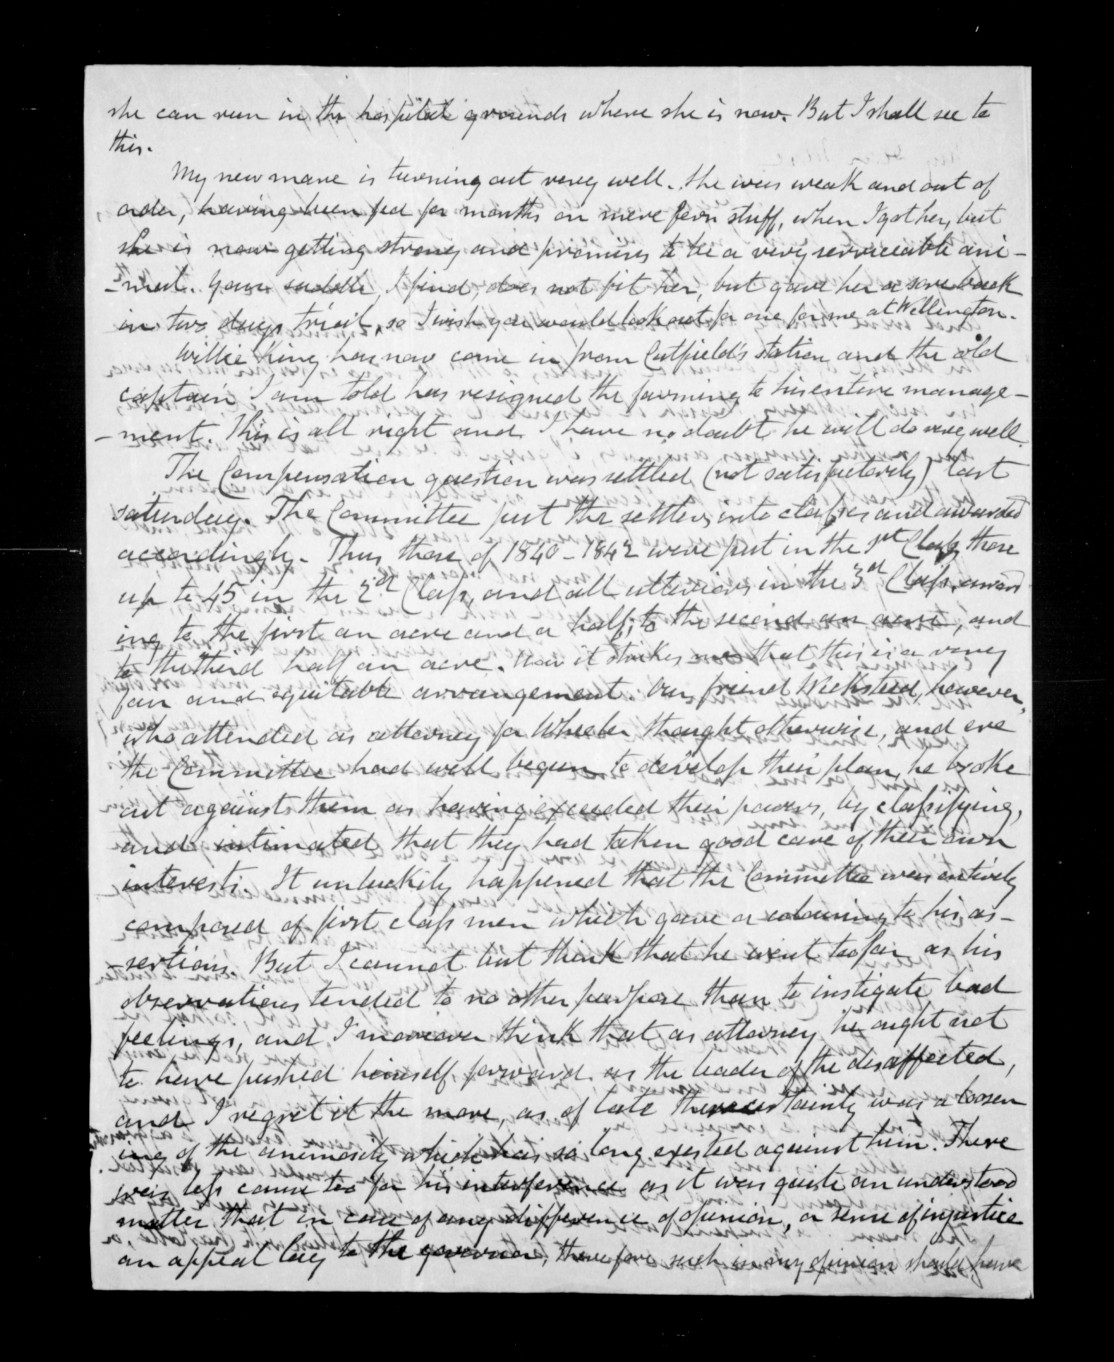 she can run in the hospital grounds where she is now. But I shall see to
this.
My new mare is turning out very well. She was weak and out of
order, having been fed for months on mere fern stuff, when I got her, but
she is now getting strong and promises to be a very serviceable ani-
-mal. Your saddle, I find, does not fit her, but gave her a sore back
in two days trial, so I wish you would look out for one for me at Wellington.
Willie King has now come in from Cutfield's station and the old
captain I am told has resigned the farming to his entire manage-
-ment. This is all right and I have no doubt he will do very well.
The Compensation question was settled (not satisfactorily) last
saturday. The Committee put the settlers into classes and awarded
accordingly. Thus those of 1840-1842 were put in the 1st Class, those
up to 45 in the 2nd Class, and all ulteriors in the 3rd Class, award-
ing to the first an acre and a half, to the second an acre, and
to the third half an acre. Now it strikes me that this is a very
fair and equitable arrangement. Our friend Wicksteed, however,
who attended as attorney for Wheeler thought otherwise, and ere
the Committee had well begun to develop their plan, he broke
out against them as having exceeded their powers, by classifying,
and intimated that they had taken good care of their own
interests. It unluckily happened that the Committee was entirely
composed of first class men which gave a colouring to his as-
-sertions. But I cannot but think that he went too far as his
observations tended to no other purpose than to instigate bad
feelings, and I moreover think that as attorney he ought not
to have pushed himself forward as the leader of the disaffected,
and I regret it the more, as of late there certainly was a loosen
ing of the animosity which has so long existed against him. There
was less cause too for his interference as it was quite an understood
matter that in case of any difference of opinion, or sense of injustice
an appeal lay to the governor, therefore such in my opinion should have